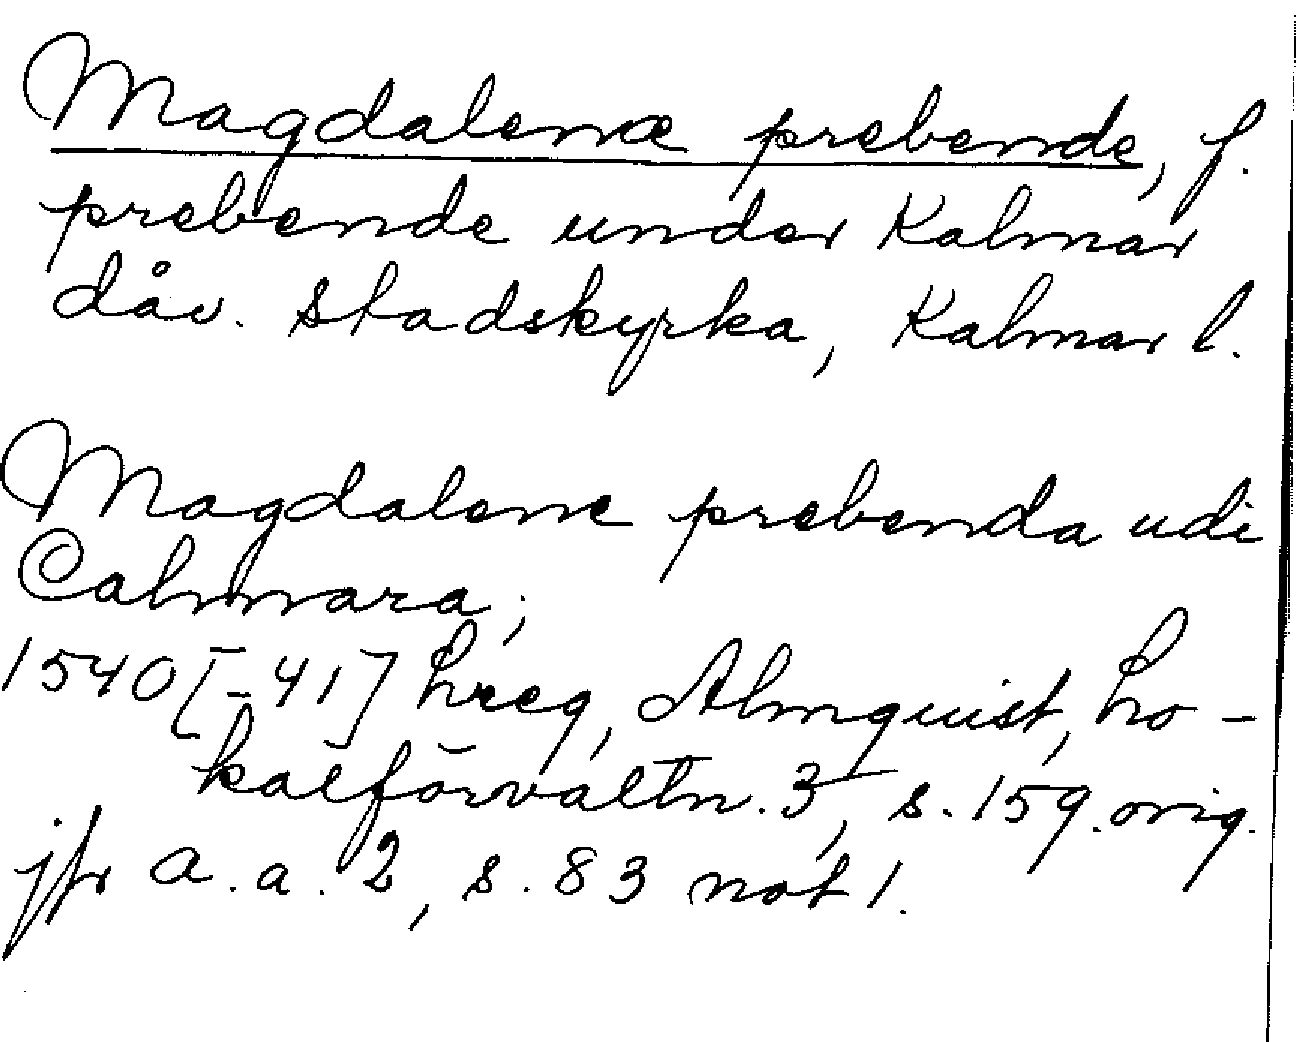 Magdalenæ prebende, f.
prebende under Kalmar
dåv. stadskyrka, Kalmar l.
Magdalene prebenda udi
Calmara;
1540[-41] hreg, Almquist, Lo-
kalförvaltn. 3, s. 159. orig.
jfr a.a. 2, s. 83 not 1.